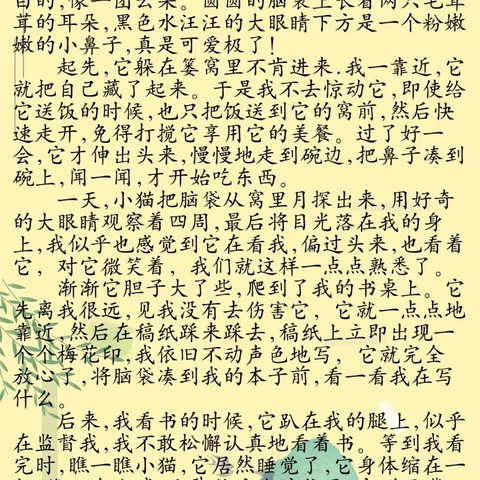 白的,像一团云朵。圆圆的脑袋上长着两只毛茸
茸的耳朵,黑色水汪汪的大眼睛下方是一个粉嫩
嫩的小鼻子,真是可爱极了!
起先,它躲在篓窝里不肯进来.我一靠近,它
就把自己藏了起来。于是我不去惊动它,即使给
它送饭的时候,也只把饭送到它的窝前,然后快
速走开,免得打搅它享用它的美餐。过了好一
会,它才伸出头来,慢慢地走到碗边,把鼻子凑到
碗上,闻一闻,才开始吃东西。
一天,小猫把脑袋从窝里月探出来,用好奇
的大眼睛观察着四周,最后将目光落在我的身
上,我似乎也感觉到它在看我,偏过头来,也看着
它,对它微笑着,我们就这样一点点熟悉了。
渐渐它胆子大了些,爬到了我的书桌上。它
先离我很远,见我没有去伤害它,它就一点点地
靠近,然后在稿纸踩来踩去,稿纸上立即出现一
个个梅花印,我依旧不动声色地写,它就完全
放心了,将脑袋凑到我的本子前,看一看我在写
什么。
后来,我看书的时候,它趴在我的腿上,似乎
在监督我,我不敢松懈认真地看着书。等到我看
完时,瞧一瞧小猫,它居然睡觉了,它身体缩在一